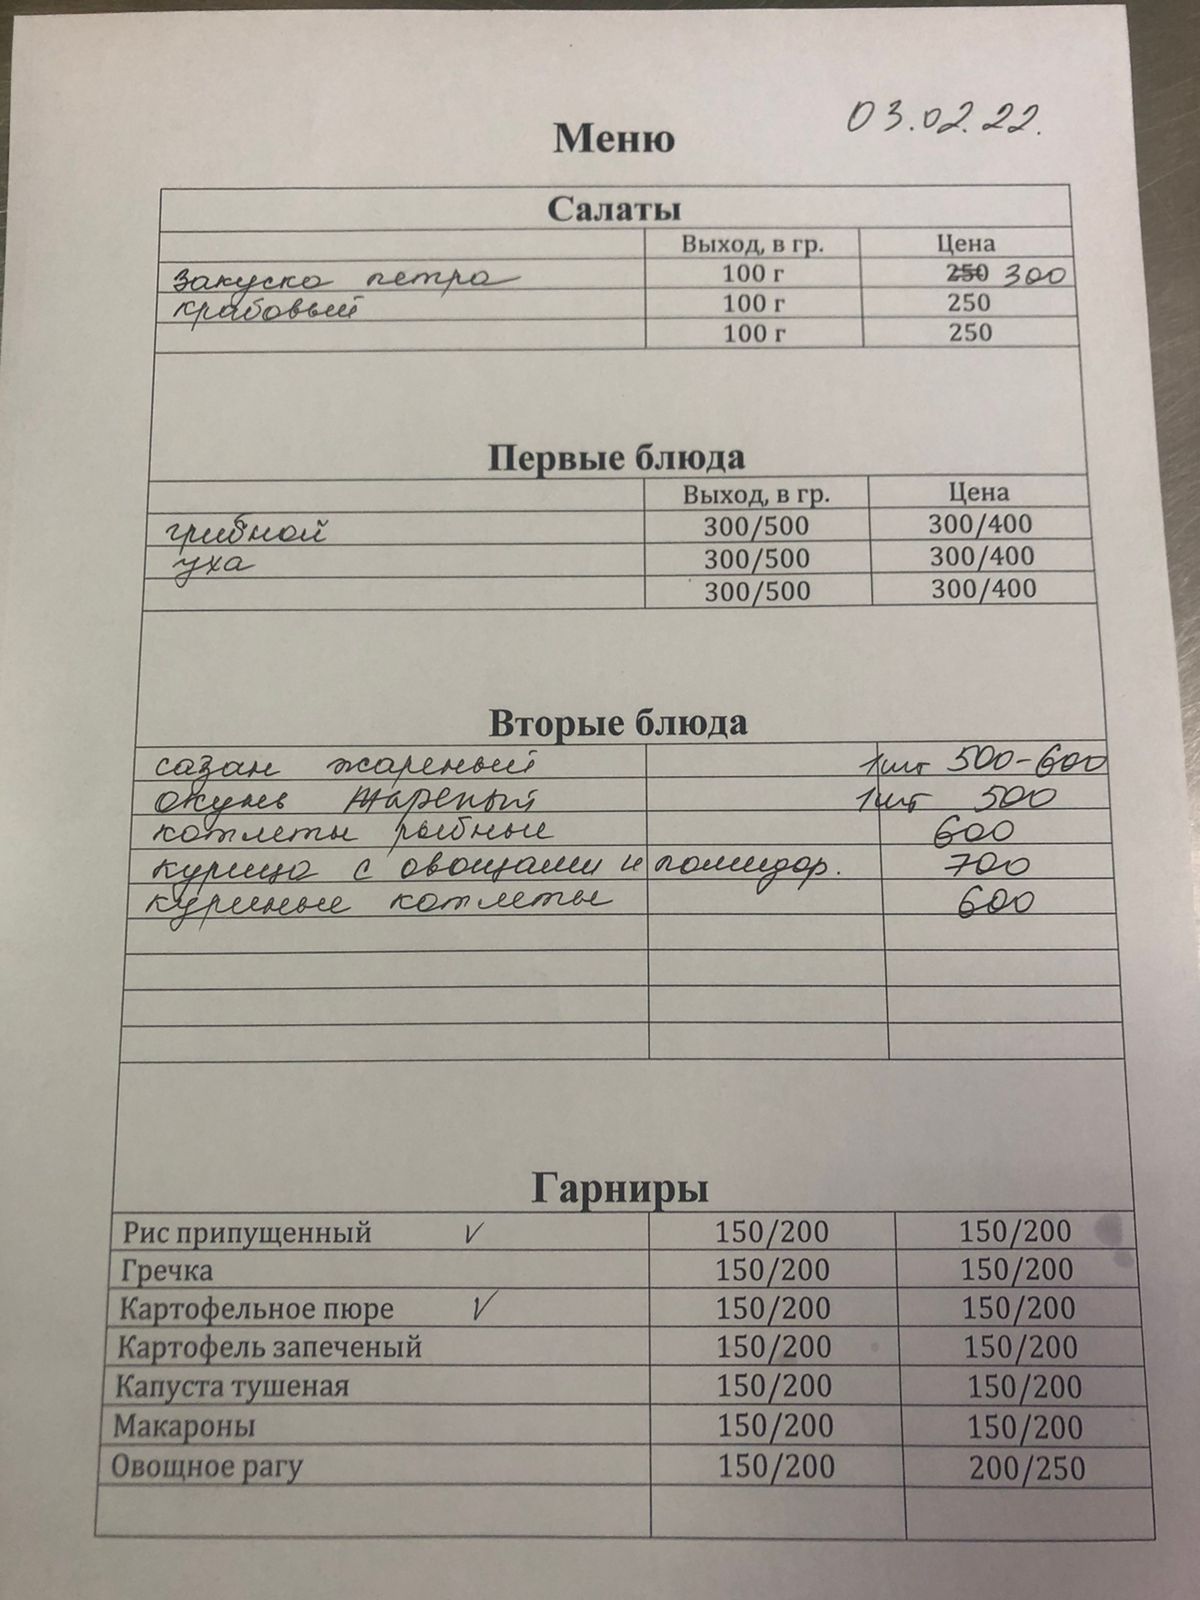 03.02.22.
Меню
Салаты
Выход, в гр. Цена
Закуска петра 100 г 250 300
крабовый 100 г 250
100 г 250
Первые блюда
Выход, в гр. Цена
грибной 300/500 300/400
уха 300/500 300/400
300/500 300/400
Вторые блюда
сазан жареный 1шт 500-600
окунь жареный 1шт 500
котлеты рыбные 600
курица с овощами и помидор. 700
куриные котлеты 600
Гарниры
Рис припущенный ✓ 150/200 150/200
Гречка 150/200 150/200
Картофельное пюре ✓ 150/200 150/200
Картофель запеченый 150/200 150/200
Капуста тушеная 150/200 150/200
Макароны 150/200 150/200
Овощное рагу 150/200 200/250